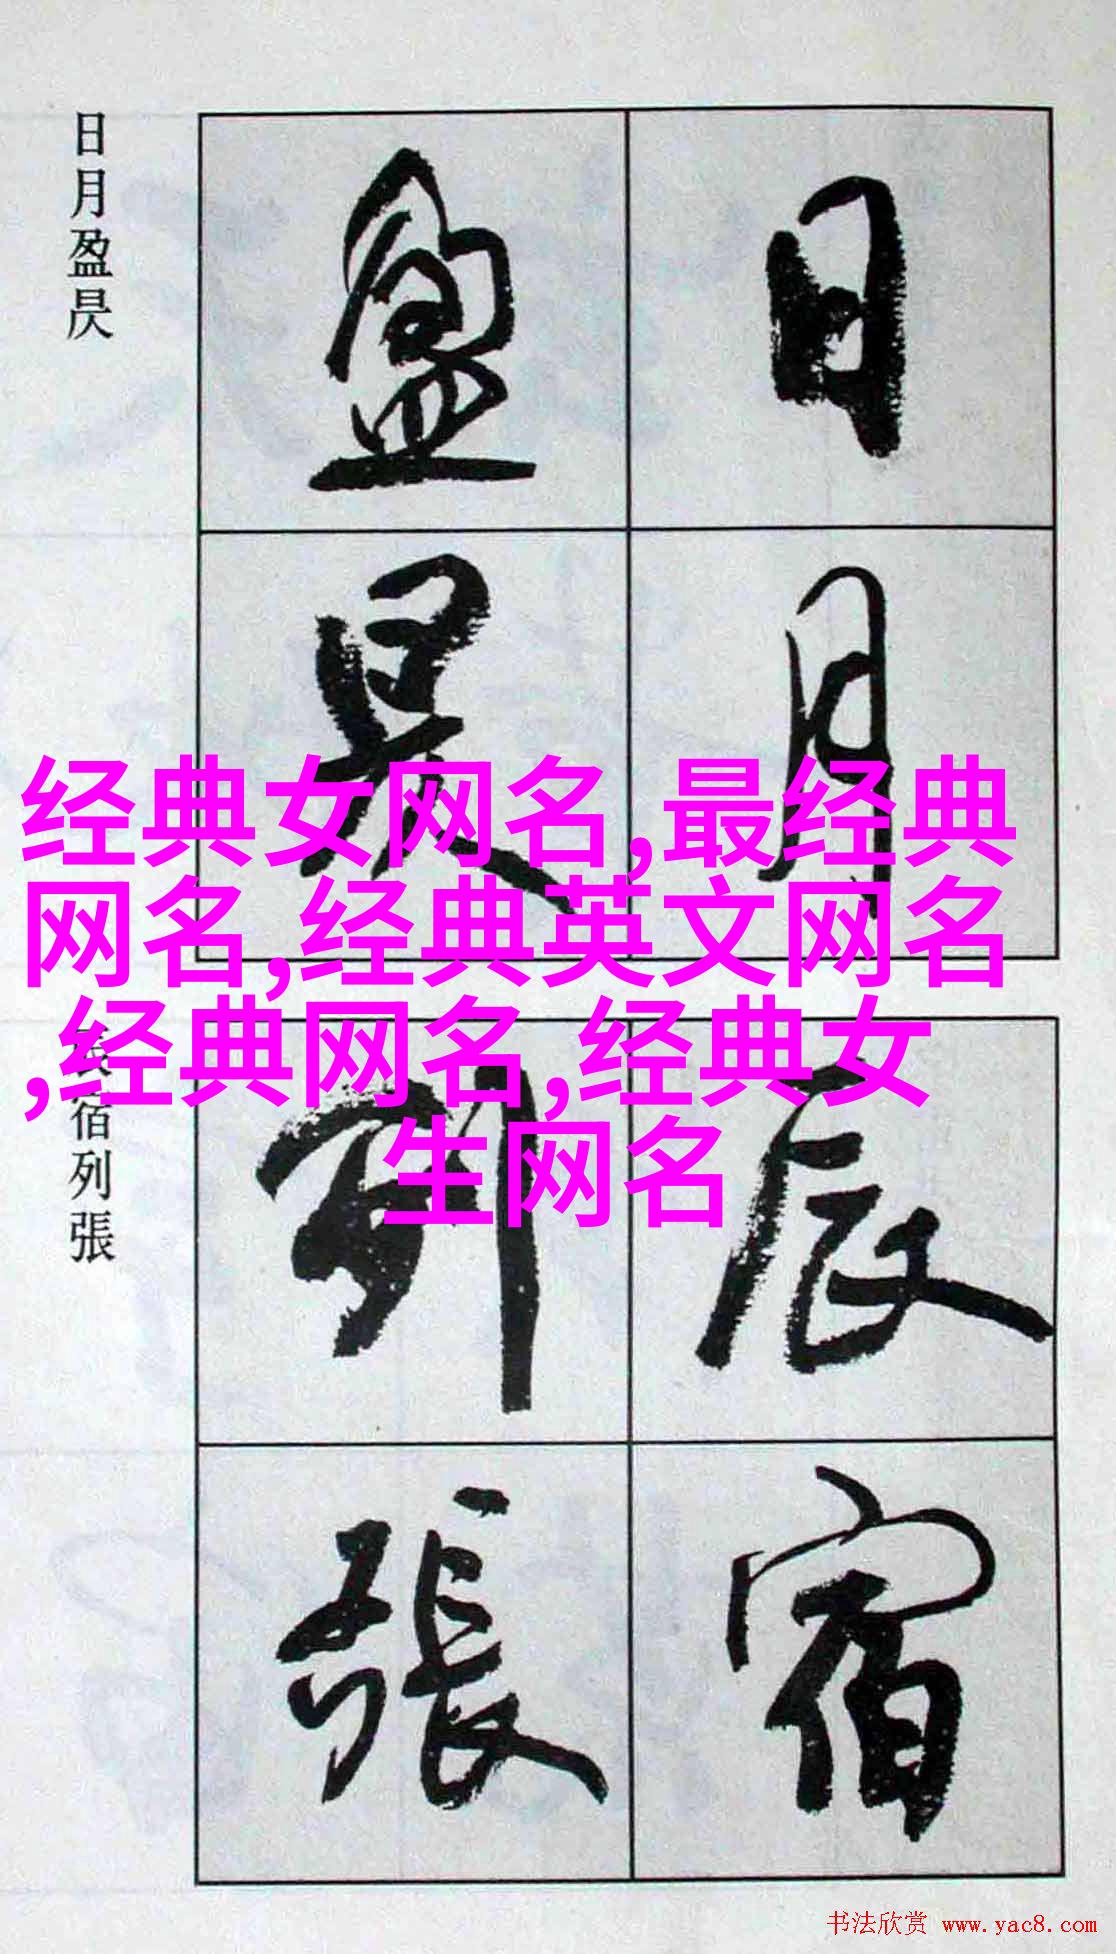 日月盈昃
日月
盈昃
经典女网名,最经典
网名,经典英文网名
,经典网名,经典女
生网名
宿列張
辰宿
列張
书法欣赏 www.yac8.com